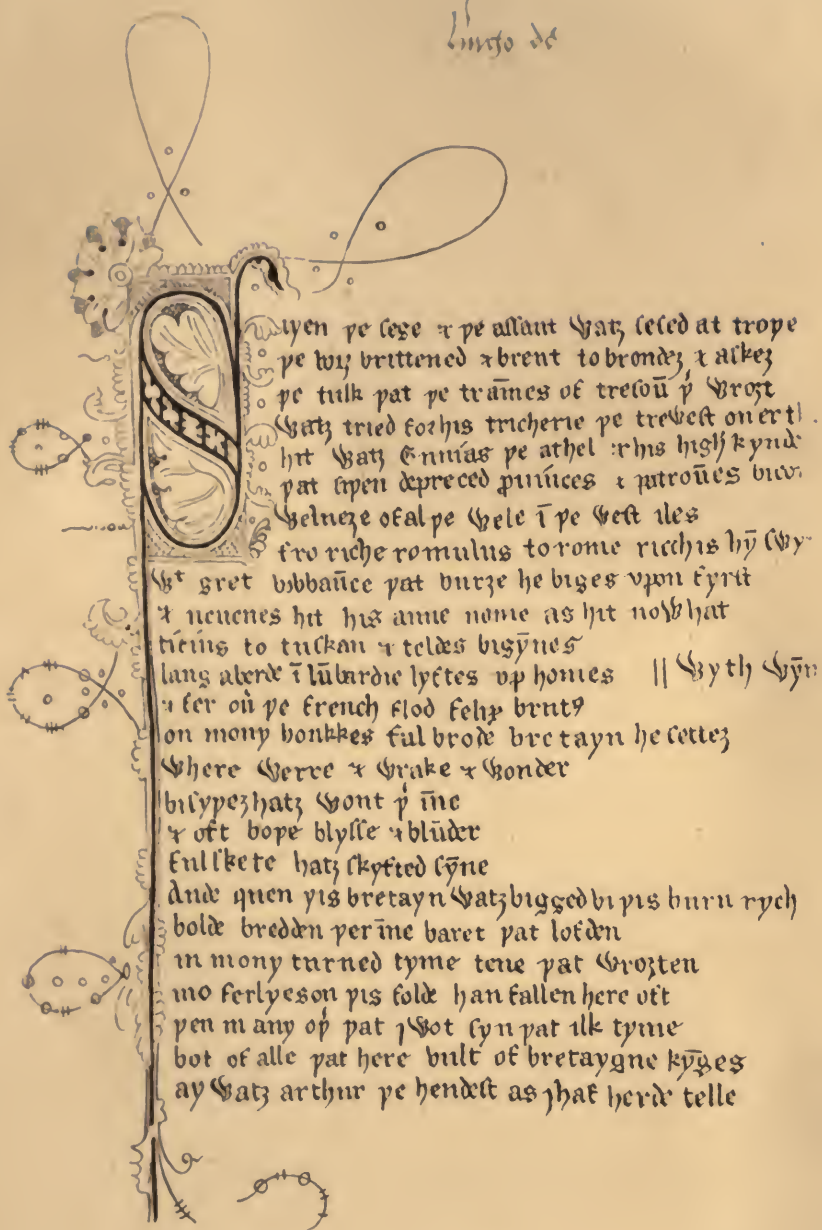 Hugo de
Siþen þe sege ⁊ þe assaut watz sesed at troye
þe borȝ brittened ⁊ brent to brondeȝ ⁊ askez
þe tulk þat þe trāmes of tresoū þ̉ wroȝt
watz tried for his tricherie þe trewest on erth
hit watz Ennias þe athel ⁊ his highe kynde
þat siþen depreced prouīces ⁊ patroūes bicome
welneȝe of al þe wele ī þe west iles
fro riche romulus to rome ricchis hȳ swyþe
wt gret bobbaūce þat burȝe he biges vpon fyrst
⁊ neuenes hit his aune nome as hit now hat
ticius to tuskan ⁊ teldes bigȳnes
lang aberde ī lūbardie lyftes vp homes || wyth wȳn
⁊ fer ou̅ þe french flod felix brutꝰ
on mony bonkkes ful brode bretayn he settez
where werre ⁊ wrake ⁊ wonder
bi syþez hatz wont þ̉ īne
⁊ oft boþe blysse ⁊ blūder
ful skete hatz skyfted sȳne
Ande quen þis bretayn watz bigged bi þis burn rych
bolde bredden þer īne baret þat lofden
in mony turned tyme tene þat wroȝten
mo ferlyes on þis folde han fallen here oft
þen in any oþ̉ þat I wot syn þat ilk tyme
bot of alle þat here bult of bretaygne kȳges
ay watz arthur þe hendest as I haf herde telle